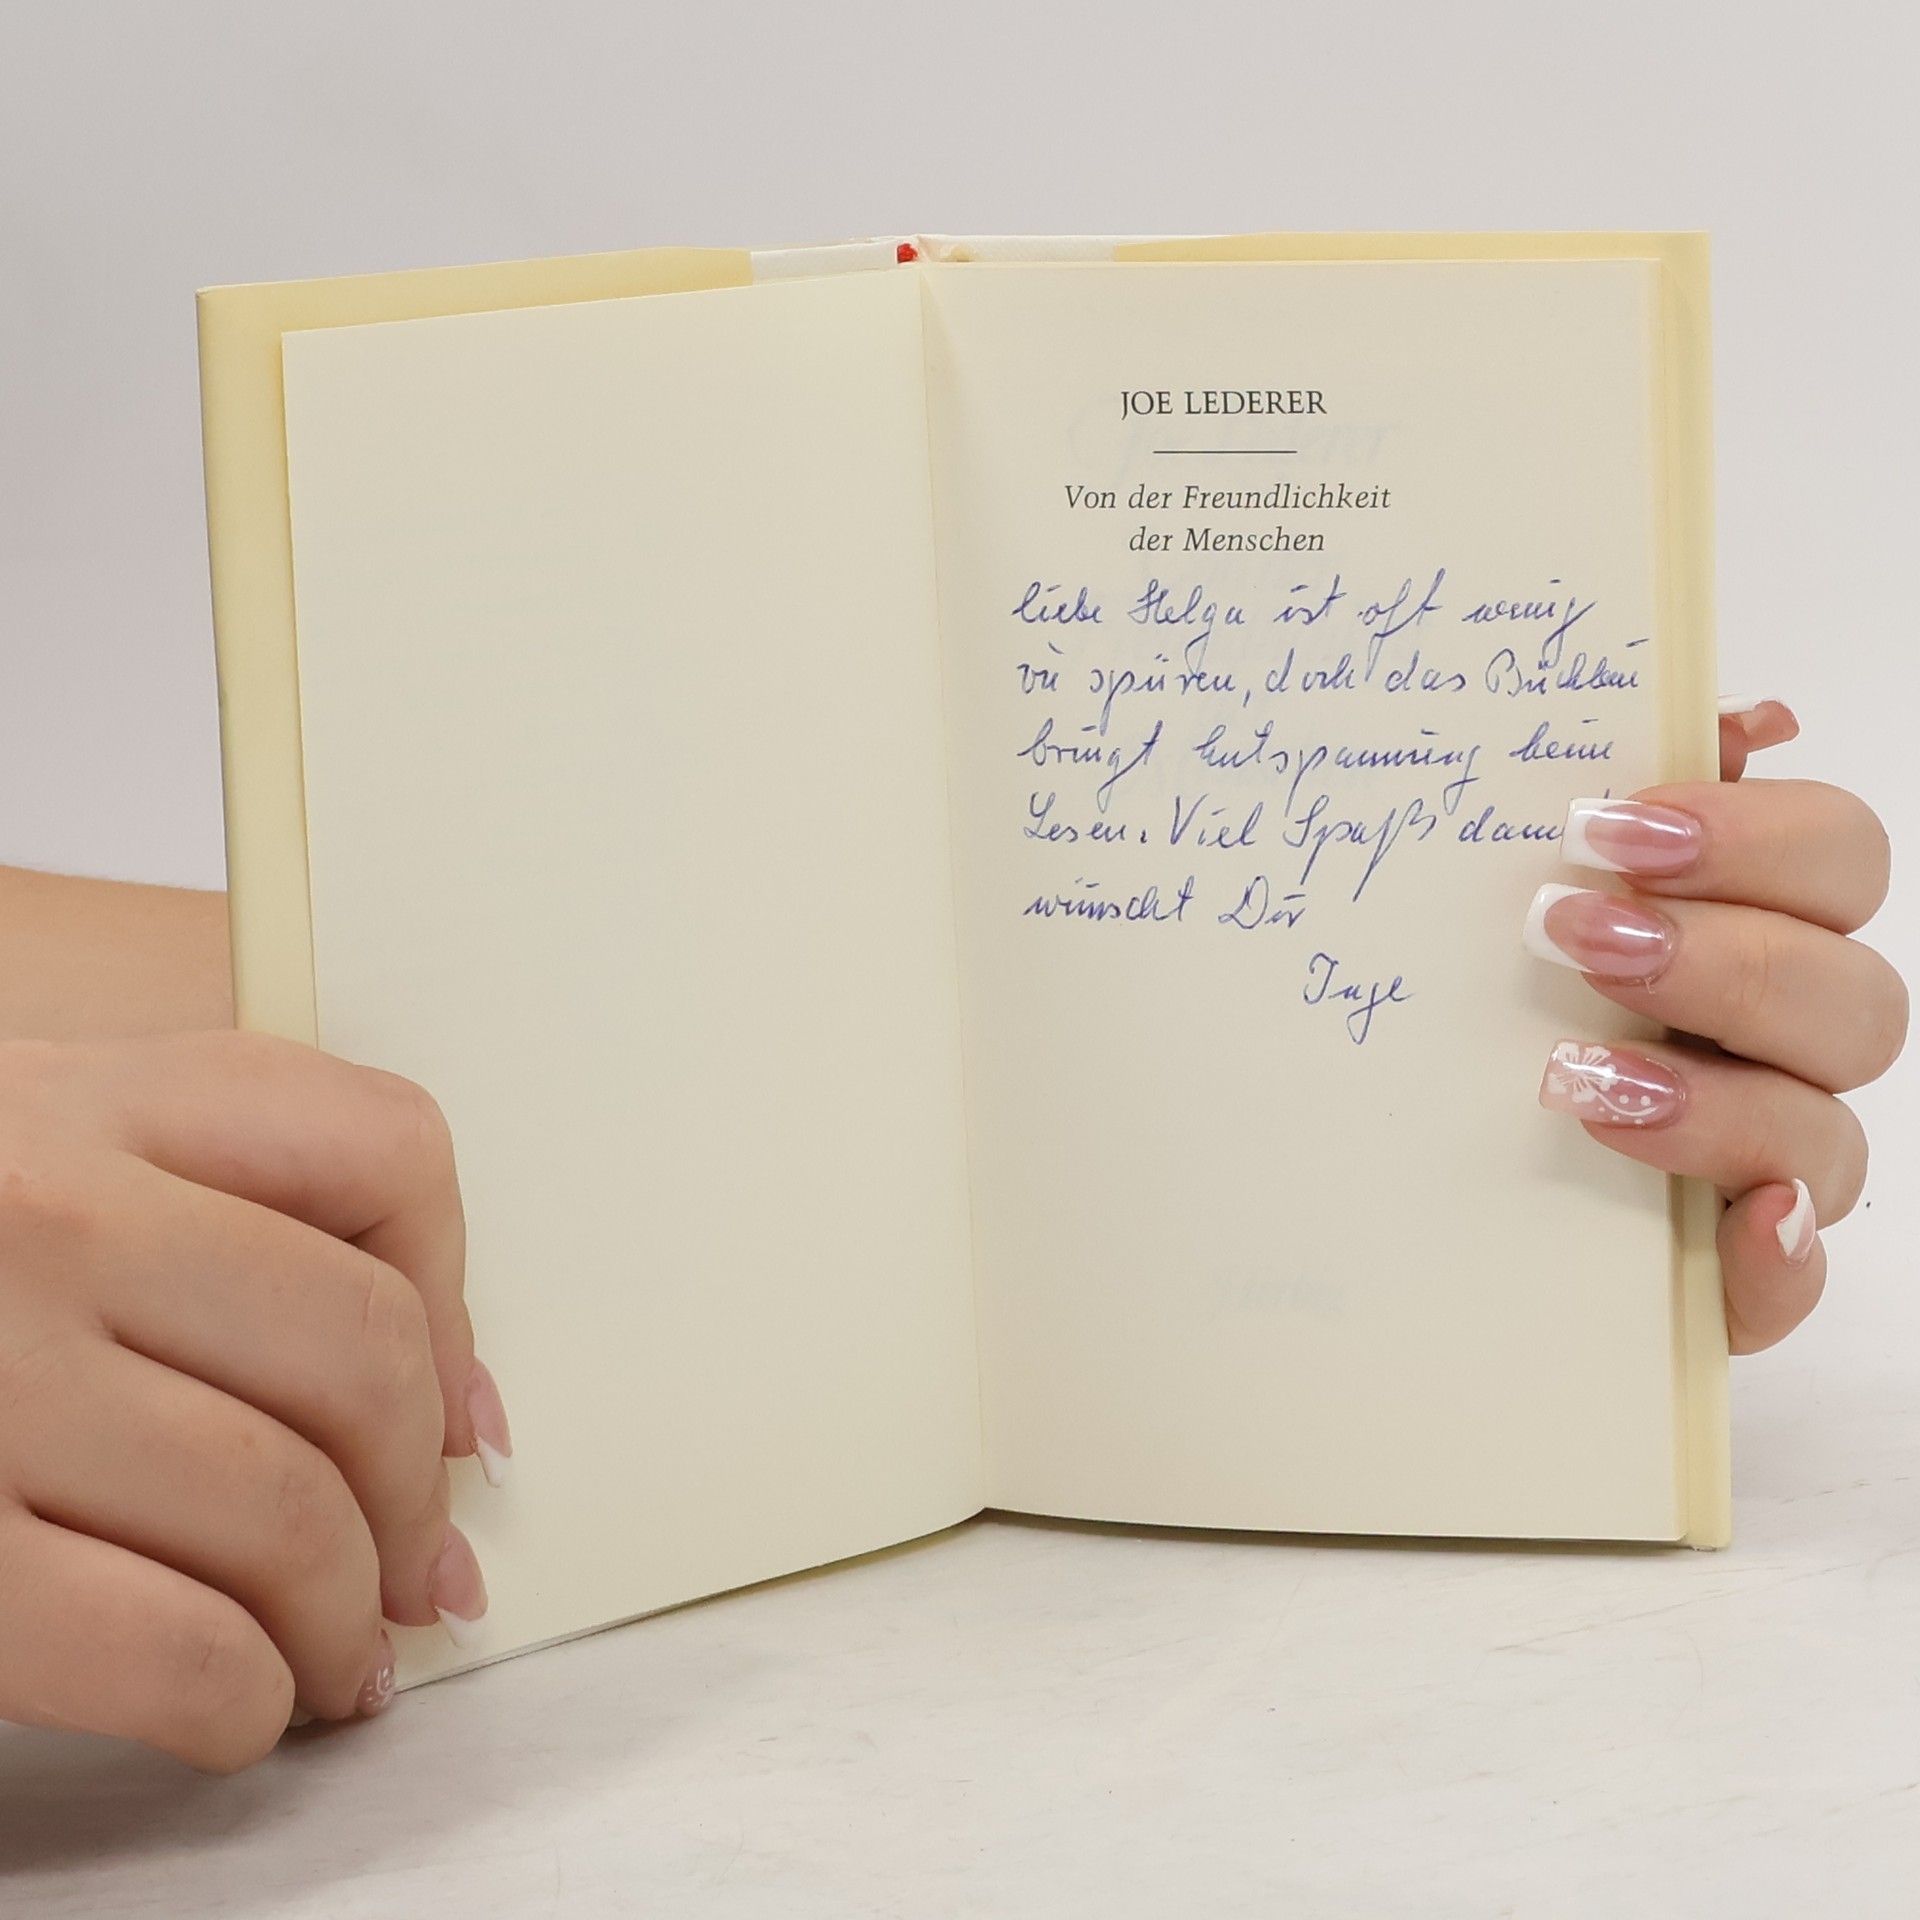 JOE LEDERER
Von der Freundlichkeit
der Menschen
liebe Helga ist oft wenig
zu spüren, doch das Büchlein
bringt Entspannung beim
Lesen. Viel Spaß dam
wünscht Dir
Inge